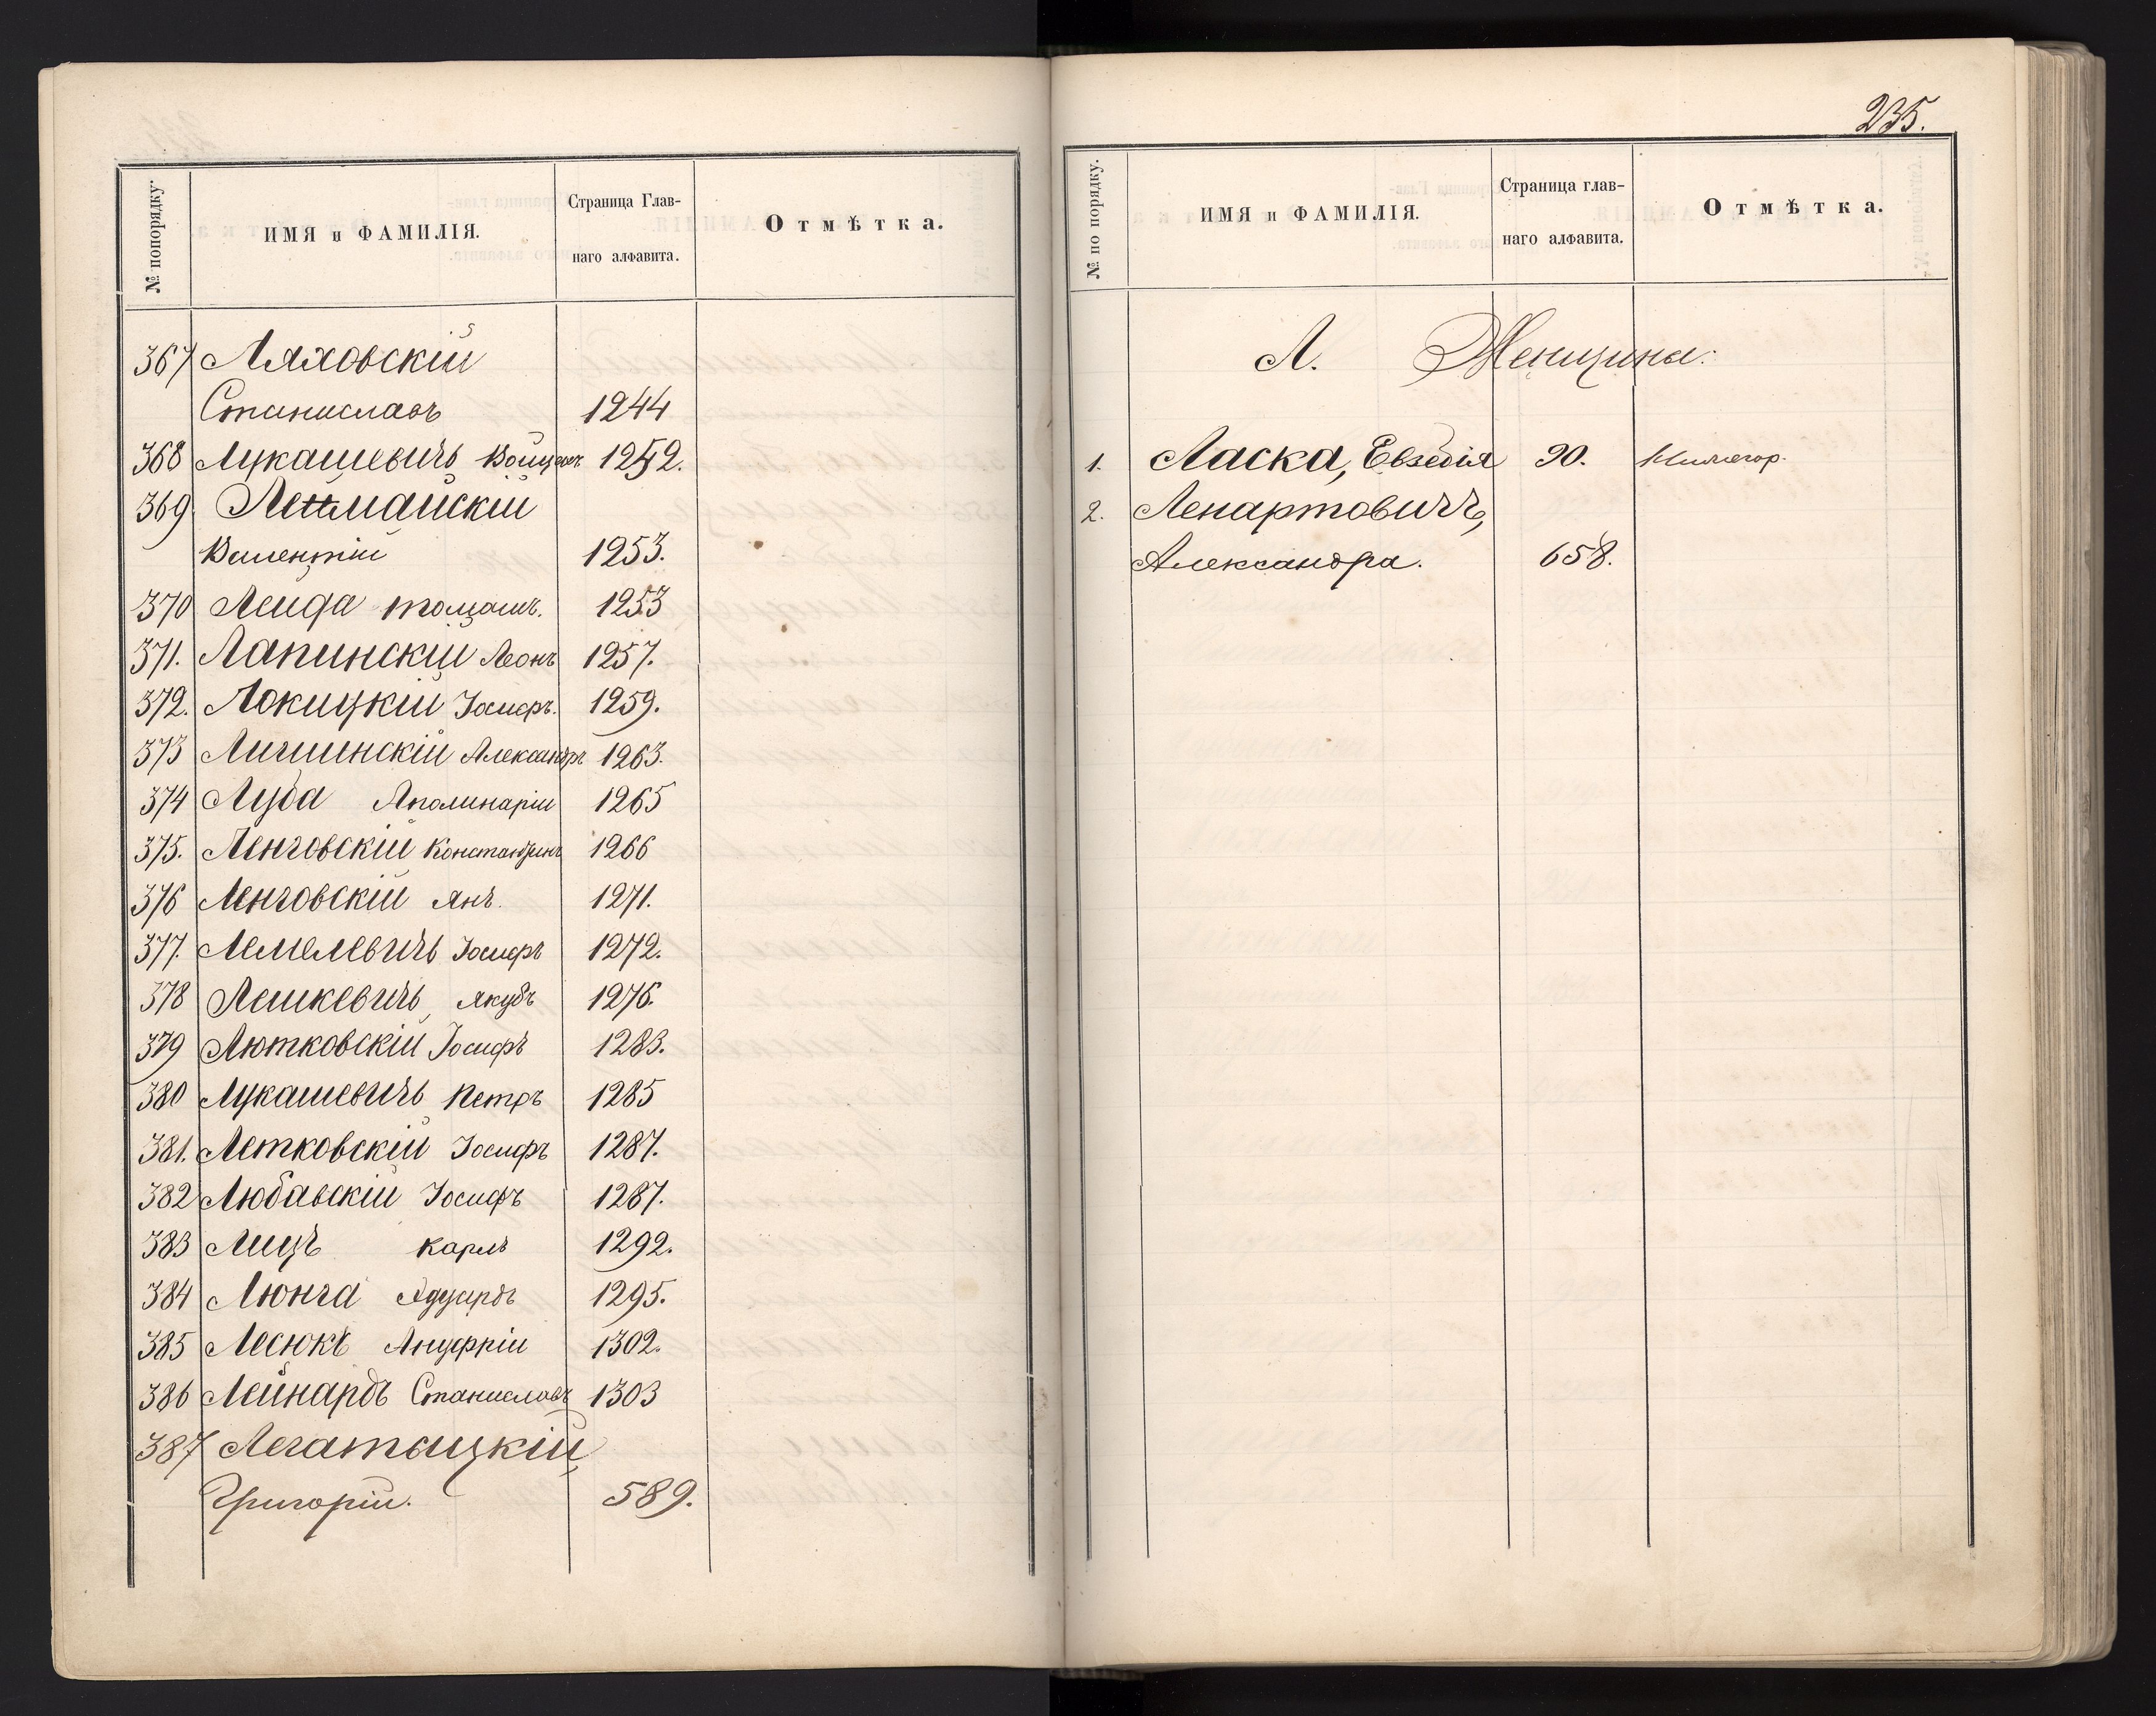 № попорядку.
ИМЯ и ФАМИЛІЯ.
Страница Глав-
наго алфавита.
Отмѣтка.
367 Ляховскій
Станиславъ 1244
368 Лукашевичъ 1252.
369
Валентій 1253.
370 Лейда Томашъ. 1253
371. Лапинскій Леонъ 1257.
372. Локицкій Іосифъ. 1259.
373 Александръ 1263.
374 Луба Аполинарій 1265
375. Ленговскій Константинъ 1266
376 Ленговскій Янъ. 1271.
377. Лемелевичъ Іосифъ 1272.
378 Лешкевичъ, Якубъ 1276.
379 Лютковскій Іосифъ 1283.
380 Лукашевичъ Петръ 1285
381. Летковскій Іосифъ 1287.
382 Любавскій Іосифъ 1287.
383 Лицъ Карлъ 1292.
384 Люнга Эдуардъ 1295.
385 Лесюкъ Ануфрій 1302.
386 Лейнардъ Станиславъ 1303
387 Легатыцкій,
Григорій. 589.
235.
№ по порядку.
ИМЯ и ФАМИЛІЯ.
Страница глав-
наго алфавита.
Отмѣтка.
Л. Женщины.
1. Ласка, Евзебія 90.
2. Ленартовичъ,
Александра. 658.